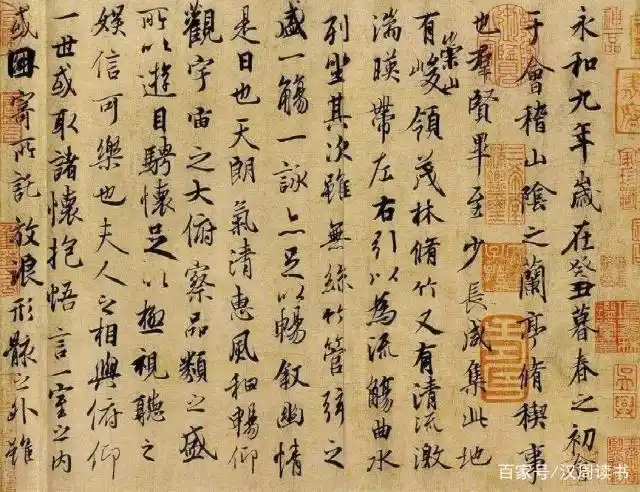 永和九年歲在癸丑暮春之初會
于會稽山陰之蘭亭脩稧事
也羣賢畢至少長咸集此地
有崇山峻領茂林脩竹又有清流激
湍暎帶左右引以為流觴曲水
列坐其次雖無絲竹管弦之
盛一觴一詠亦足以暢敘幽情
是日也天朗氣清惠風和暢仰
觀宇宙之大俯察品類之盛
所以遊目騁懷足以極視聽之
娛信可樂也夫人之相與俯仰
一世或取諸懷抱悟言一室之內
或因寄所託放浪形骸之外雖
百家号/汉周读书